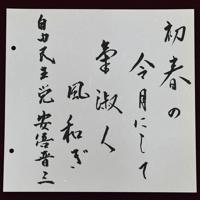 初春の
令月にして
氣淑く
風和ぎ
自由民主党 安倍晋三